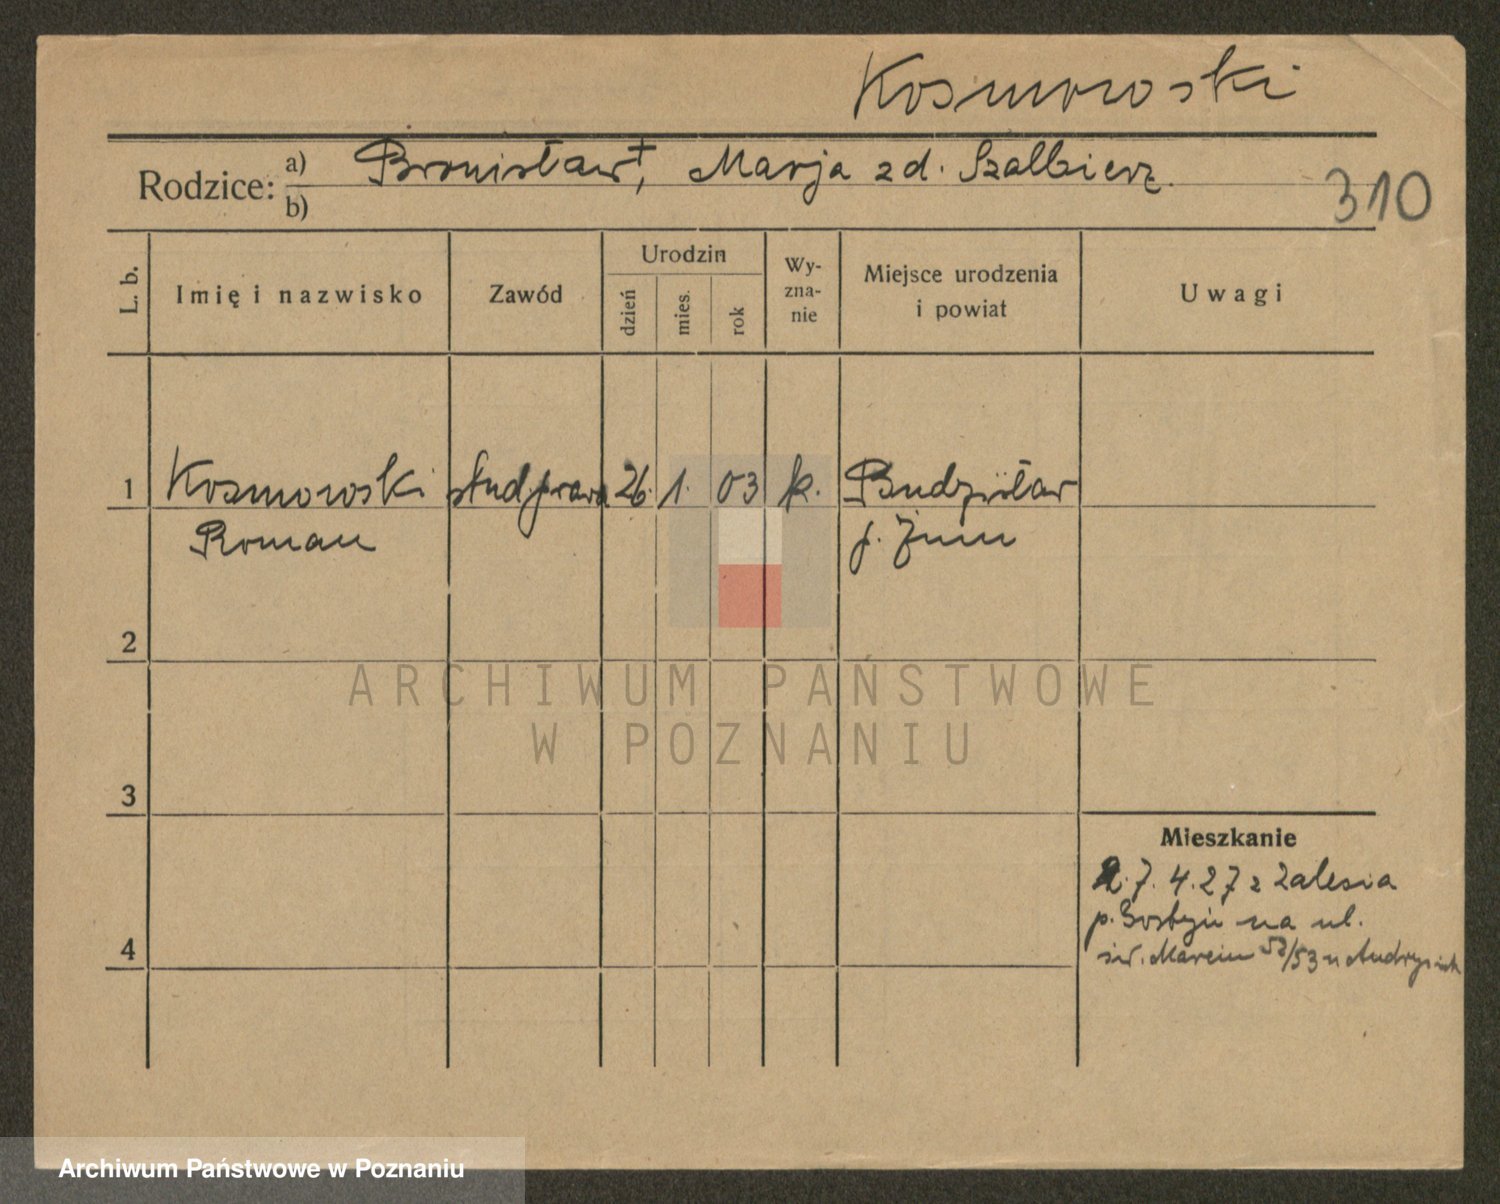 Kosmowski
Rodzice: a) Bronisław†, Marja zd. Szalbierz
b)
310
L. b.
Imię i nazwisko
Zawód
Urodzin
dzień
mies.
rok
Wy-
zna-
nie
Miejsce urodzenia
i powiat
Uwagi
1 Kosmowski stud. prawa 26. 1. 03 k. Budzisław
Roman p. Żnin
2
3
4
Mieszkanie
7. 4. 27 z Zalesia
p. Gostyń na ul.
św. Marcin 52/53 u
ARCHIWUM PAŃSTWOWE
W POZNANIU
Archiwum Państwowe w Poznaniu